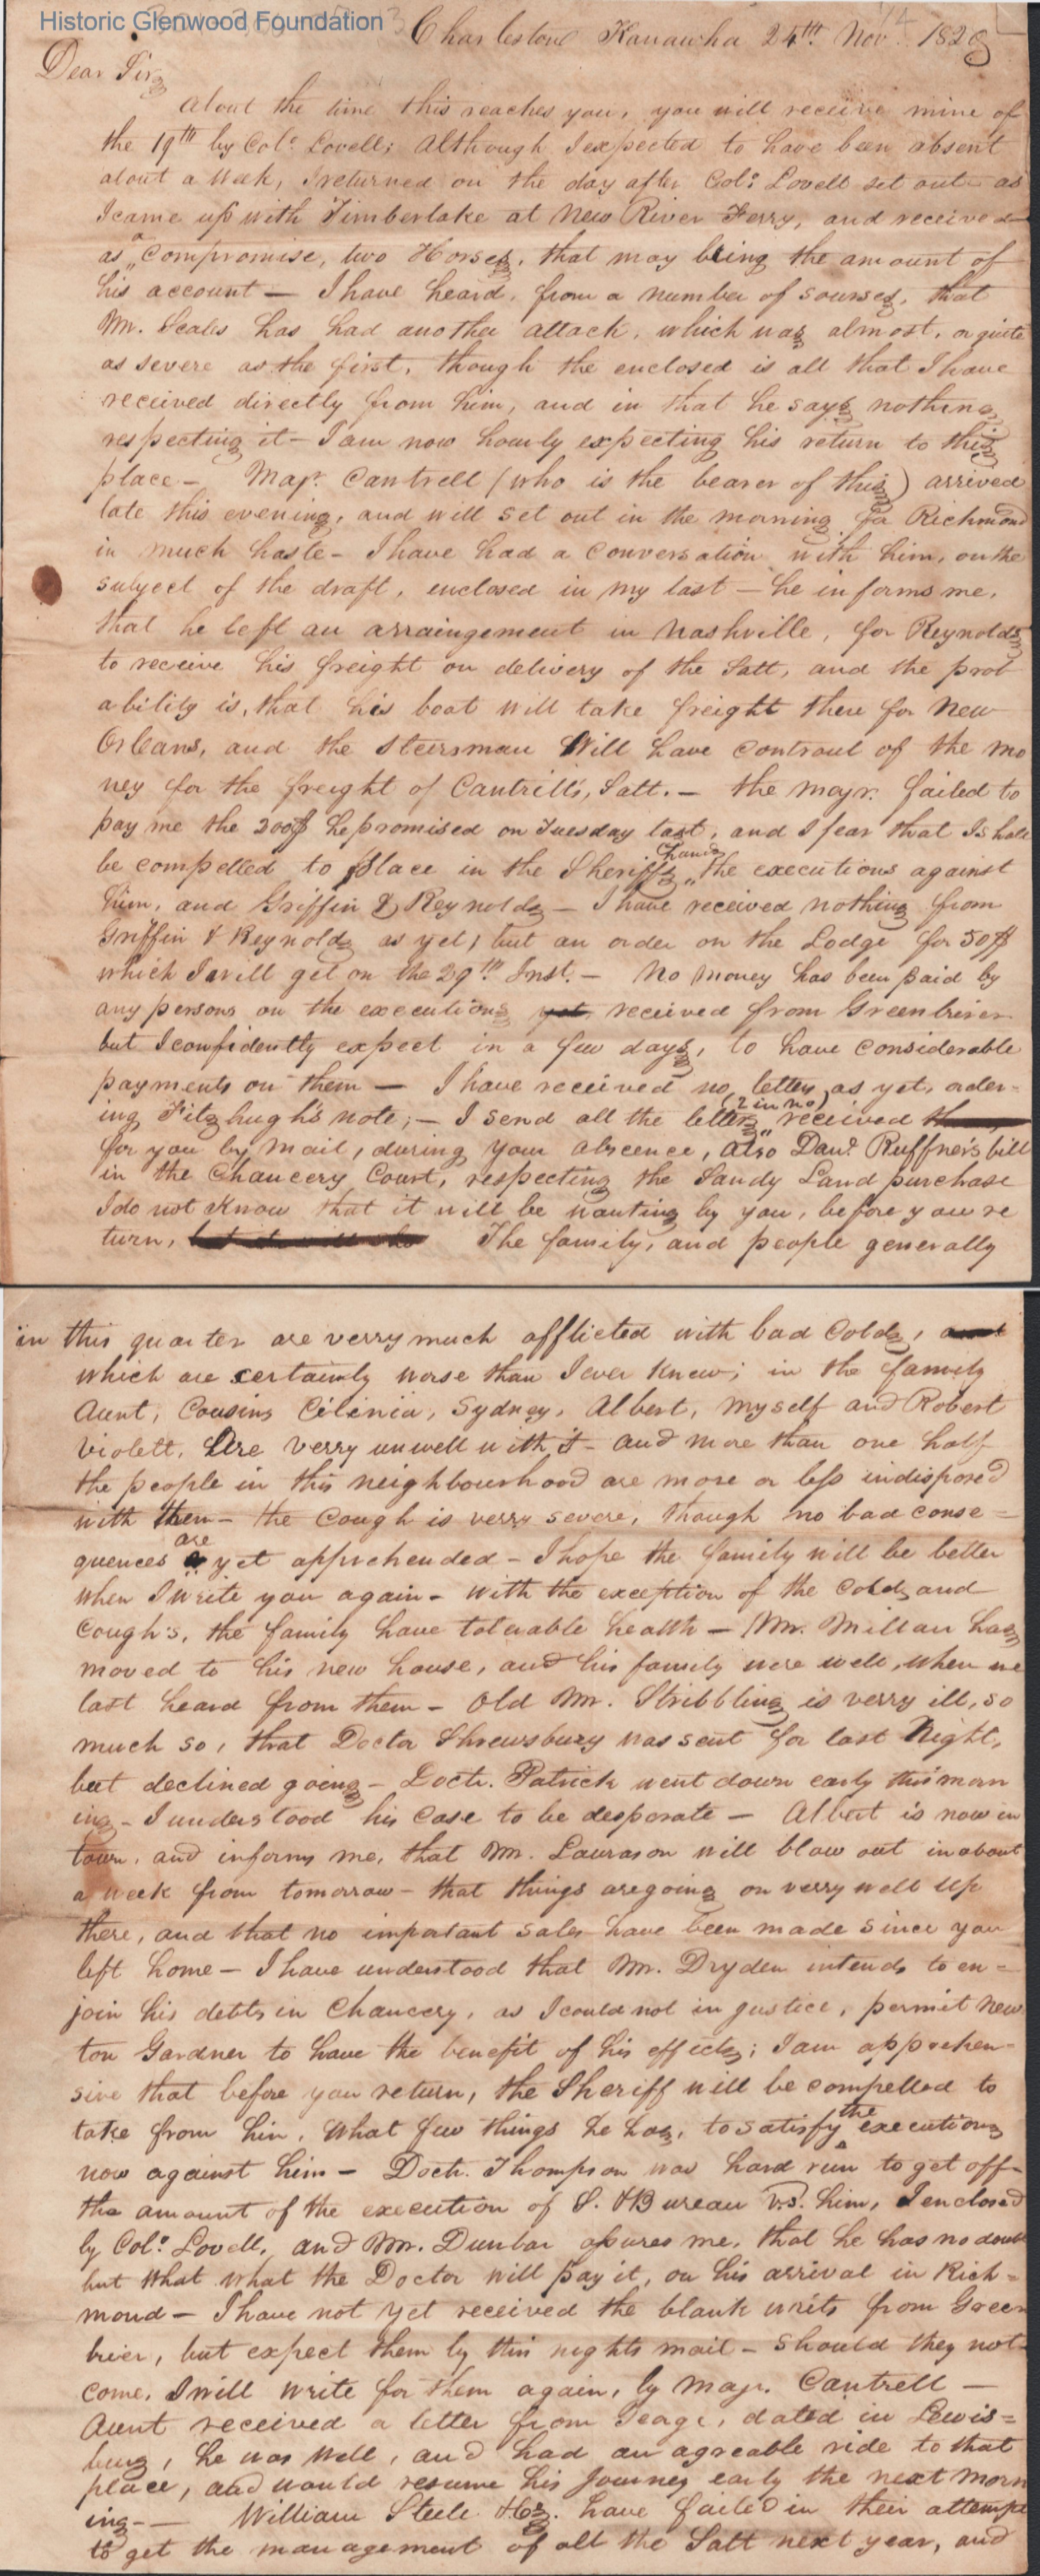 Historic Glenwood Foundation
Charlestown Kanawha 24th Nov. 1820
Dear Sir,
About the time this reaches you, you will receive mine of
the 19th by Colo. Lovell; Although I expected to have been absent
about a week, I returned on the day after Colo. Lovell set out - as
I came up with Timberlake at New River Ferry, and received
as a compromise, two Horses, that may bring the amount of
his account — I have heard, from a number of sourses, that
Mr. Scales has had another attack, which was almost, or quite
as severe as the first, though the enclosed is all that I have
received directly from him, and in that he says nothing
respecting it - I am now hourly expecting his return to this
place - Majr. Cantrell (who is the bearer of this) arrived
late this evening, and will set out in the morning for Richmond
in much haste - I have had a conversation with him, on the
subject of the draft, enclosed in my last — he informs me,
that he left an arraingement in Nashville, for Reynolds
to receive his freight on delivery of the Salt, and the prob
ability is, that his boat will take freight there for New
Orleans, and the steersman Will have controul of the mo
ney for the freight of Cantrills, Salt. - the Majr. failed to
pay me the 200$ he promised on Tuesday last, and I fear that I shall
be compelled to place in the Sheriffs hands the executions against
him, and Griffin & Reynolds - I have received nothing from
Griffin & Reynolds as yet, but an order on the Lodge for 50$
which I will get on the 29th Inst. - No money has been paid by
any persons on the executions yet received from Greenbrier
but I confidently expect in a few days, to have considerable
payments on them — I have received no letter, as yet, order-
ing Fitzhugh's note; - I send all the letters (2 in no) received
for you by mail, during your abscence, also Danl. Ruffner's bill
in the Chancery Court, respecting the Sandy Land purchase
I do not know that it will be wanting by you, before you re
turn, The family, and people generally
in this quarter are verry much afflicted with bad Colds, and
which are certainly worse than I ever knew; in the family
Aunt, Cousins Celenia, Sydney, Albert, myself and Robert
Violett, Are verry unwell with it - and more than one half
the people in this neighbourhood are more or less indisposed
with them - the Cough is verry severe, though no bad conse=
quences are yet apprehended - I hope the family will be better
when I write you again - with the exception of the Colds and
Cough's, the family have tolerable health — Mr. Millan has
moved to his new house, and his family were well, when we
last heard from them - Old Mr. Stribbling is verry ill, so
much so, that Doctor Shrewsbury was sent for last Night,
but declined going - Doctr. Patrick went down early this morn
ing - I understood his case to be desporate — Albert is now in
town, and informs me, that Mr. Laurason will blow out in about
a week from tomorrow - that things are going on verry well up
there, and that no important sales have been made since you
left home - I have understood that Mr. Dryden intends to en=
join his debts in Chancery, as I could not in justice, permit New
ton Gardner to have the benefit of his effects; I am apprehen-
sive that before you return, the Sheriff will be compelled to
take from him, What few things he has, to satisfy the executions
now against him - Doctr. Thompson was hard run to get off-
the amount of the execution of S. & Bureau vs. him, I enclosed
by Colo. Lovell, and Mr. Dunbar assures me, that he has no doubt
but what what the Doctor will pay it, on his arrival in Rich=
mond - I have not yet received the blank writs from Green
brier, but expect them by this nights mail - should they not
come, I will write for them again, by Majr. Cantrell —
Aunt received a letter from, dated in Lewis=
burg, he was well, and had an agreable ride to that
place, and would resume his Journey early the next morn
ing - — William Steele & Co. have failed in their attempt
to get the management of all the Salt next year, and